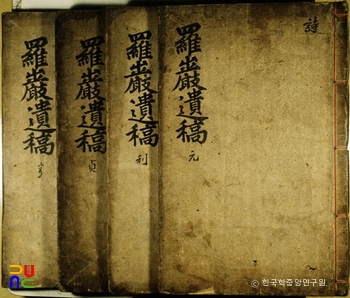 詩
羅巖遺稿 元
羅巖遺稿 利
羅巖遺稿 貞
羅巖遺稿 亨
© 한국학중앙연구원